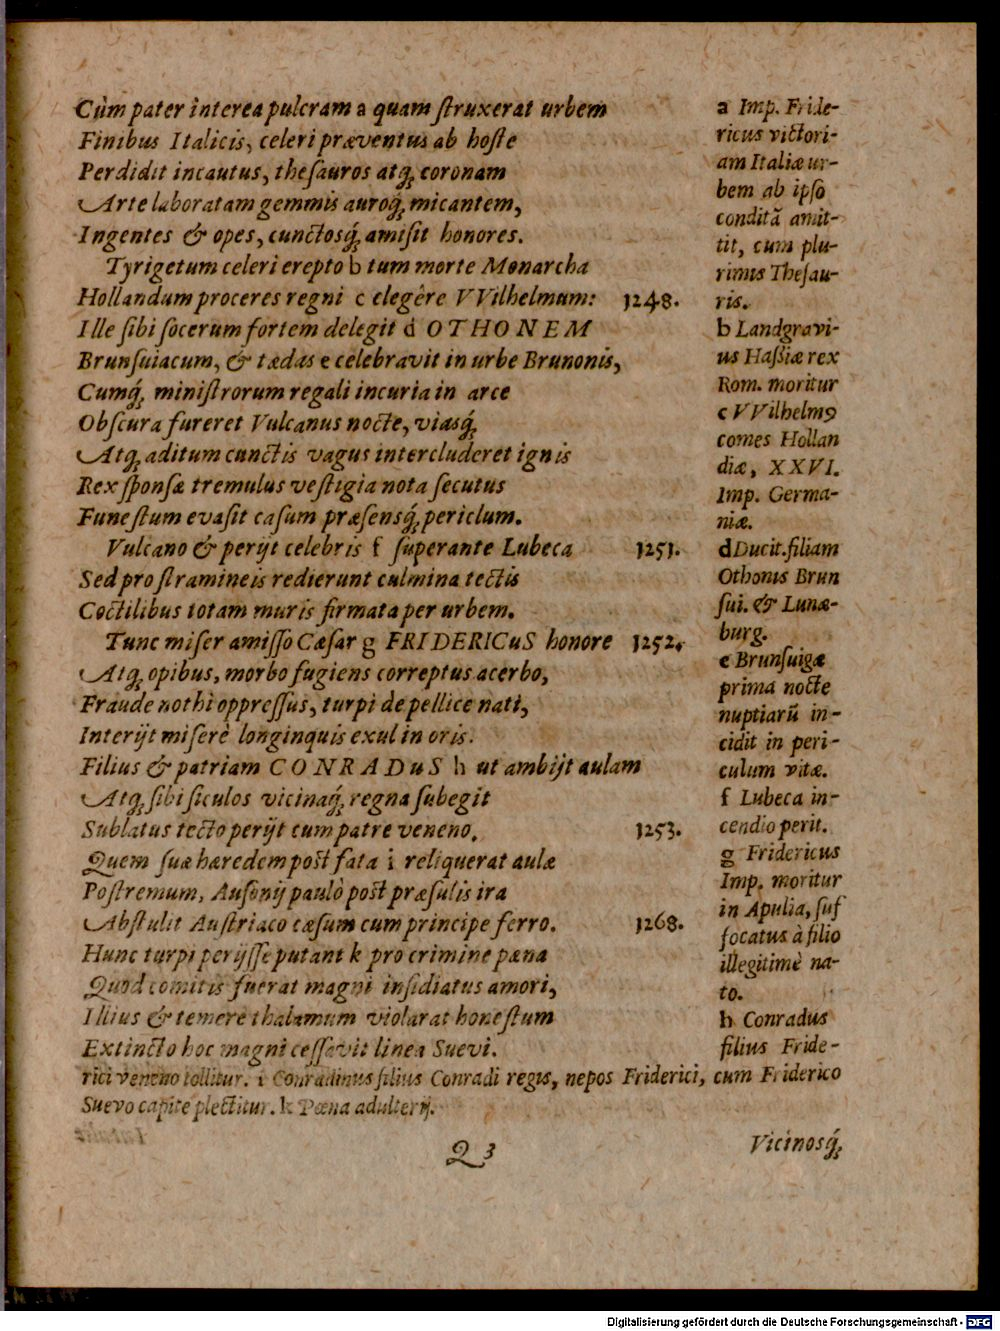 Cùm pater interea pulcram a quam ſtruxerat urbem
Finibus Italicis, celeri præventus ab hoſte
Perdidit incautus, theſauros atq́ꝫ coronam
Arte laboratam gemmis auroq́ꝫ micantem,
Ingentes & opes, cunctosq́ꝫ amiſit honores.
Tyrigetum celeri erepto b tum morte Monarcha
Hollandum proceres regni c elegêre VVilhelmum: 1248.
Ille ſibi ſocerum fortem delegit d OTHONEM
Brunſuiacum, & tædas e celebravit in urbe Brunonis,
Cumq́ꝫ miniſtrorum regali incuria in arce
Obſcura fureret Vulcanus nocte, viasq́ꝫ
Atq́ꝫ aditum cunctis vagus intercluderet ignis
Rex ſponſæ tremulus veſtigia nota ſecutus
Funeſtum evaſit caſum præſensq́ꝫ periclum.
Vulcano & perijt celebris f ſuperante Lubeca 1251.
Sed pro ſtramineis redierunt culmina tectis
Coctilibus totam muris firmata per urbem.
Tunc miſer amiſſo Cæſar g FRIDERICuS honore 1252.
Atq́ꝫ opibus, morbo fugiens correptus acerbo,
Fraude nothi oppreſſus, turpi de pellice nati,
Interijt miſerè longinquis exul in oris.
Filius & patriam CONRADuS h ut ambijt aulam
Atq́ꝫ ſibi ſiculos vicinaq́ꝫ regna ſubegit
Sublatus tecto perijt cum patre veneno. 1253.
Quem ſuæ hæredem poſt fata i reliquerat aulæ
Poſtremum, Auſonij paulò poſt præſulis ira
Abſtulit Auſtriaco cæſum cum principe ferro. 1268.
Hunc turpi perijſſe putant k pro crimine pæna
Quod comitis fuerat magni inſidiatus amori,
Illius & temerè thalamum violarat honeſtum
Extincto hoc magni ceſſavit linea Suevi.
a Imp. Fride-
ricus victori-
am Italiæ ur-
bem ab ipſo
conditã amit-
tit, cum plu-
rimis Theſau-
ris.
b Landgravi-
us Haſſiæ rex
Rom. moritur
c VVilhelmꝰ
comes Hollan
diæ, XXVI.
Imp. Germa-
niæ.
d Ducit. filiam
Othonis Brun
ſui. & Lunæ-
burg.
e Brunſuigæ
prima nocte
nuptiarũ in-
cidit in peri-
culum vitæ.
f Lubeca in-
cendio perit.
g Fridericus
Imp. moritur
in Apulia, ſuf
focatus à filio
illegitimè na-
to.
h Conradus
filius Fride-
rici veneno tollitur. i Conradinus filius Conradi regis, nepos Friderici, cum Friderico
Suevo capite plectitur. k Pæna adulterij.
Q 3
Vicinosq́ꝫ
Digitalisierung gefördert durch die Deutsche Forschungsgemeinschaft - DFG